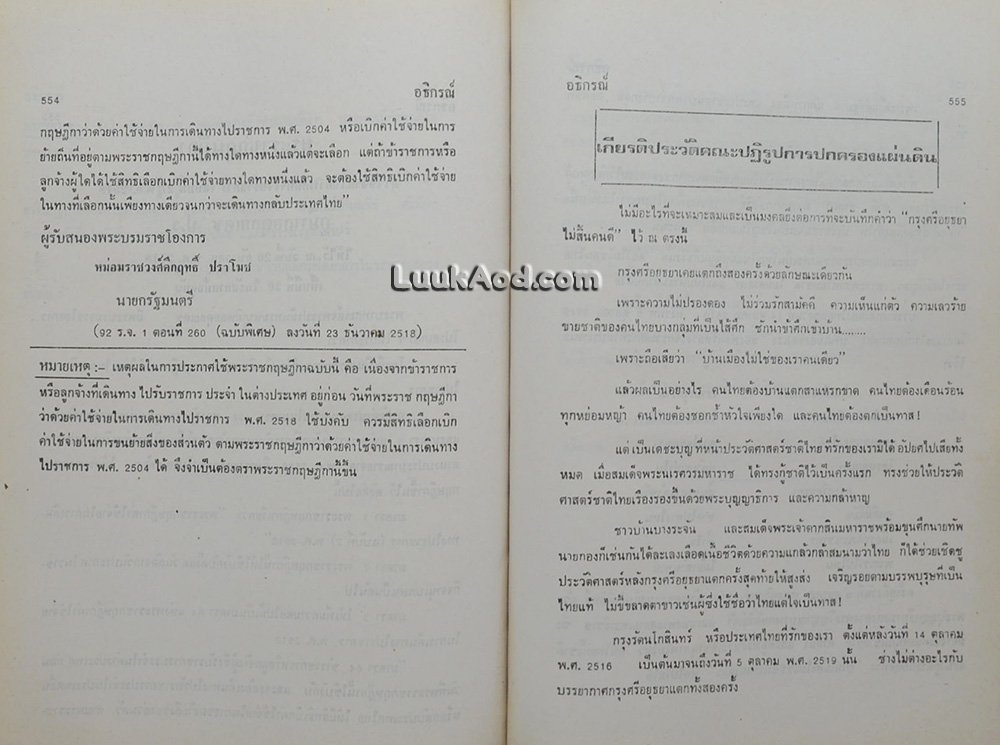 554
อธิกรณ์
กฤษฎีกาว่าด้วยค่าใช้จ่ายในการเดินทางไปราชการ พ.ศ. 2504 หรือเบิกค่าใช้จ่ายในการ
ย้ายถิ่นที่อยู่ตามพระราชกฤษฎีกานี้ได้ทางใดทางหนึ่งแล้วแต่จะเลือก แต่ถ้าข้าราชการหรือ
ลูกจ้างผู้ใดได้ใช้สิทธิเลือกเบิกค่าใช้จ่ายทางใดทางหนึ่งแล้ว จะต้องใช้สิทธิเบิกค่าใช้จ่าย
ในทางที่เลือกนั้นเพียงทางเดียวจนกว่าจะเดินทางกลับประเทศไทย"
ผู้รับสนองพระบรมราชโองการ
หม่อมราชวงศ์คึกฤทธิ์ ปราโมช
นายกรัฐมนตรี
(92 ร.จ. 1 ตอนที่ 260 (ฉบับพิเศษ) ลงวันที่ 23 ธันวาคม 2518)
หมายเหตุ :- เหตุผลในการประกาศใช้พระราชกฤษฎีกาฉบับนี้ คือ เนื่องจากข้าราชการ
หรือลูกจ้างที่เดินทาง ไปรับราชการ ประจำ ในต่างประเทศ อยู่ก่อน วันที่พระราช กฤษฎีกา
ว่าด้วยค่าใช้จ่ายในการเดินทางไปราชการ พ.ศ. 2518 ใช้บังคับ ควรมีสิทธิเลือกเบิก
ค่าใช้จ่ายในการขนย้ายสิ่งของส่วนตัว ตามพระราชกฤษฎีกาว่าด้วยค่าใช้จ่ายในการเดินทาง
ไปราชการ พ.ศ. 2504 ได้ จึงจำเป็นต้องตราพระราชกฤษฎีกานี้ขึ้น
อธิกรณ์
555
เกียรติประวัติคณะปฏิรูปการปกครองแผ่นดิน
ไม่มีอะไรที่จะเหมาะสมและเป็นมงคลยิ่งต่อการที่จะบันทึกคำว่า "กรุงศรีอยุธยา
ไม่สิ้นคนดี" ไว้ ณ ตรงนี้
กรุงศรีอยุธยาเคยแตกถึงสองครั้งด้วยลักษณะเดียวกัน
เพราะความไม่ปรองดอง ไม่ร่วมรักสามัคคี ความเห็นแก่ตัว ความเลวร้าย
ขายชาติของคนไทยบางกลุ่มที่เป็นไส้ศึก ชักนำข้าศึกเข้าบ้าน........
เพราะถือเสียว่า "บ้านเมืองไม่ใช่ของเราคนเดียว"
แล้วผลเป็นอย่างไร คนไทยต้องบ้านแตกสาแหรกขาด คนไทยต้องเดือนร้อน
ทุกหย่อมหญ้า คนไทยต้องชอกช้ำหัวใจเพียงใด และคนไทยต้องตกเป็นทาส!
แต่ เป็นเดชะบุญ ที่หน้าประวัติศาสตร์ชาติไทย ที่รักของเรามิได้ อัปยศไปเสียทั้ง
หมด เมื่อสมเด็จพระนเรศวรมหาราช ได้ทรงกู้ชาติไว้เป็นครั้งแรก ทรงช่วยให้ประวัติ
ศาสตร์ชาติไทยเรืองรองขึ้นด้วยพระบุญญาธิการ และความกล้าหาญ
ชาวบ้านบางระจัน และสมเด็จพระเจ้าตากสินมหาราชพร้อมขุนศึกนายทัพ
นายกองก็เช่นกันได้สละเลงเลือดเนื้อชีวิตด้วยความแกล้วกล้าสมนามว่าไทย ก็ได้ช่วยเชิดชู
ประวัติศาสตร์หลังกรุงศรีอยุธยาแตกครั้งสุดท้ายให้สูงส่ง เจริญรอยตามบรรพบุรุษที่เป็น
ไทยแท้ ไม่ขี้ขลาดตาขาวเช่นผู้ซึ่งใช้ชื่อว่าไทยแต่ใจเป็นทาส!
กรุงรัตนโกสินทร์ หรือประเทศไทยที่รักของเรา ตั้งแต่หลังวันที่ 14 ตุลาคม
พ.ศ. 2516 เป็นต้นมาจนถึงวันที่ 5 ตุลาคม พ.ศ. 2519 นั้น ช่างไม่ต่างอะไรกับ
บรรยากาศกรุงศรีอยุธยาแตกทั้งสองครั้ง
LuukAod.com